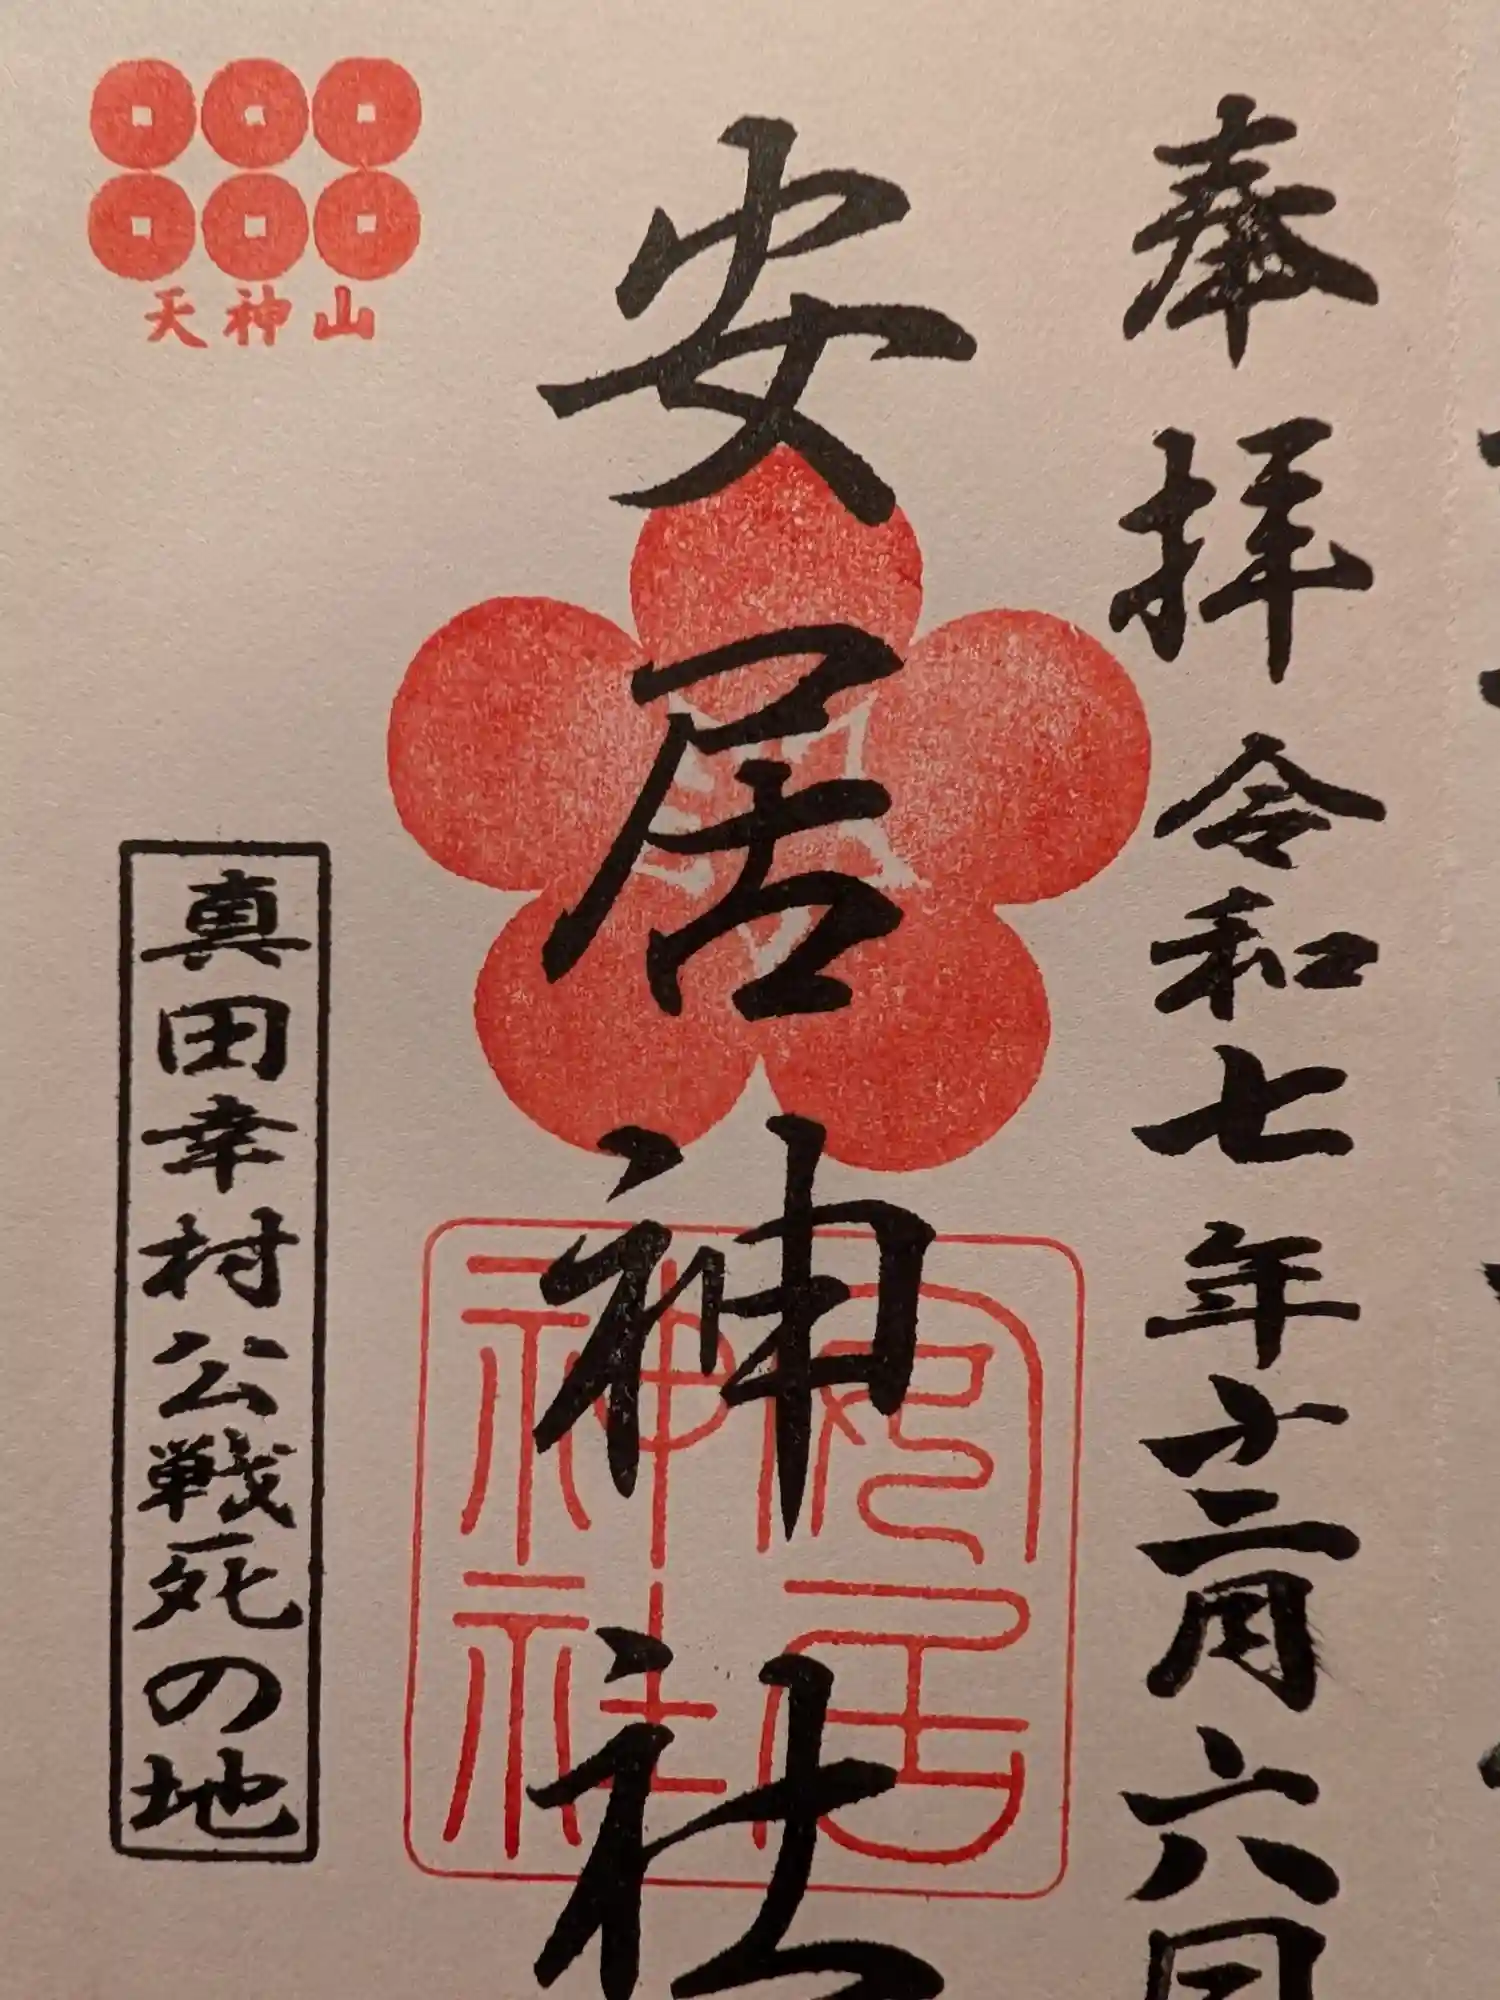 奉拝 令和七年十二月六日
安居神社
安居神社
天神山
真田幸村公戦死の地